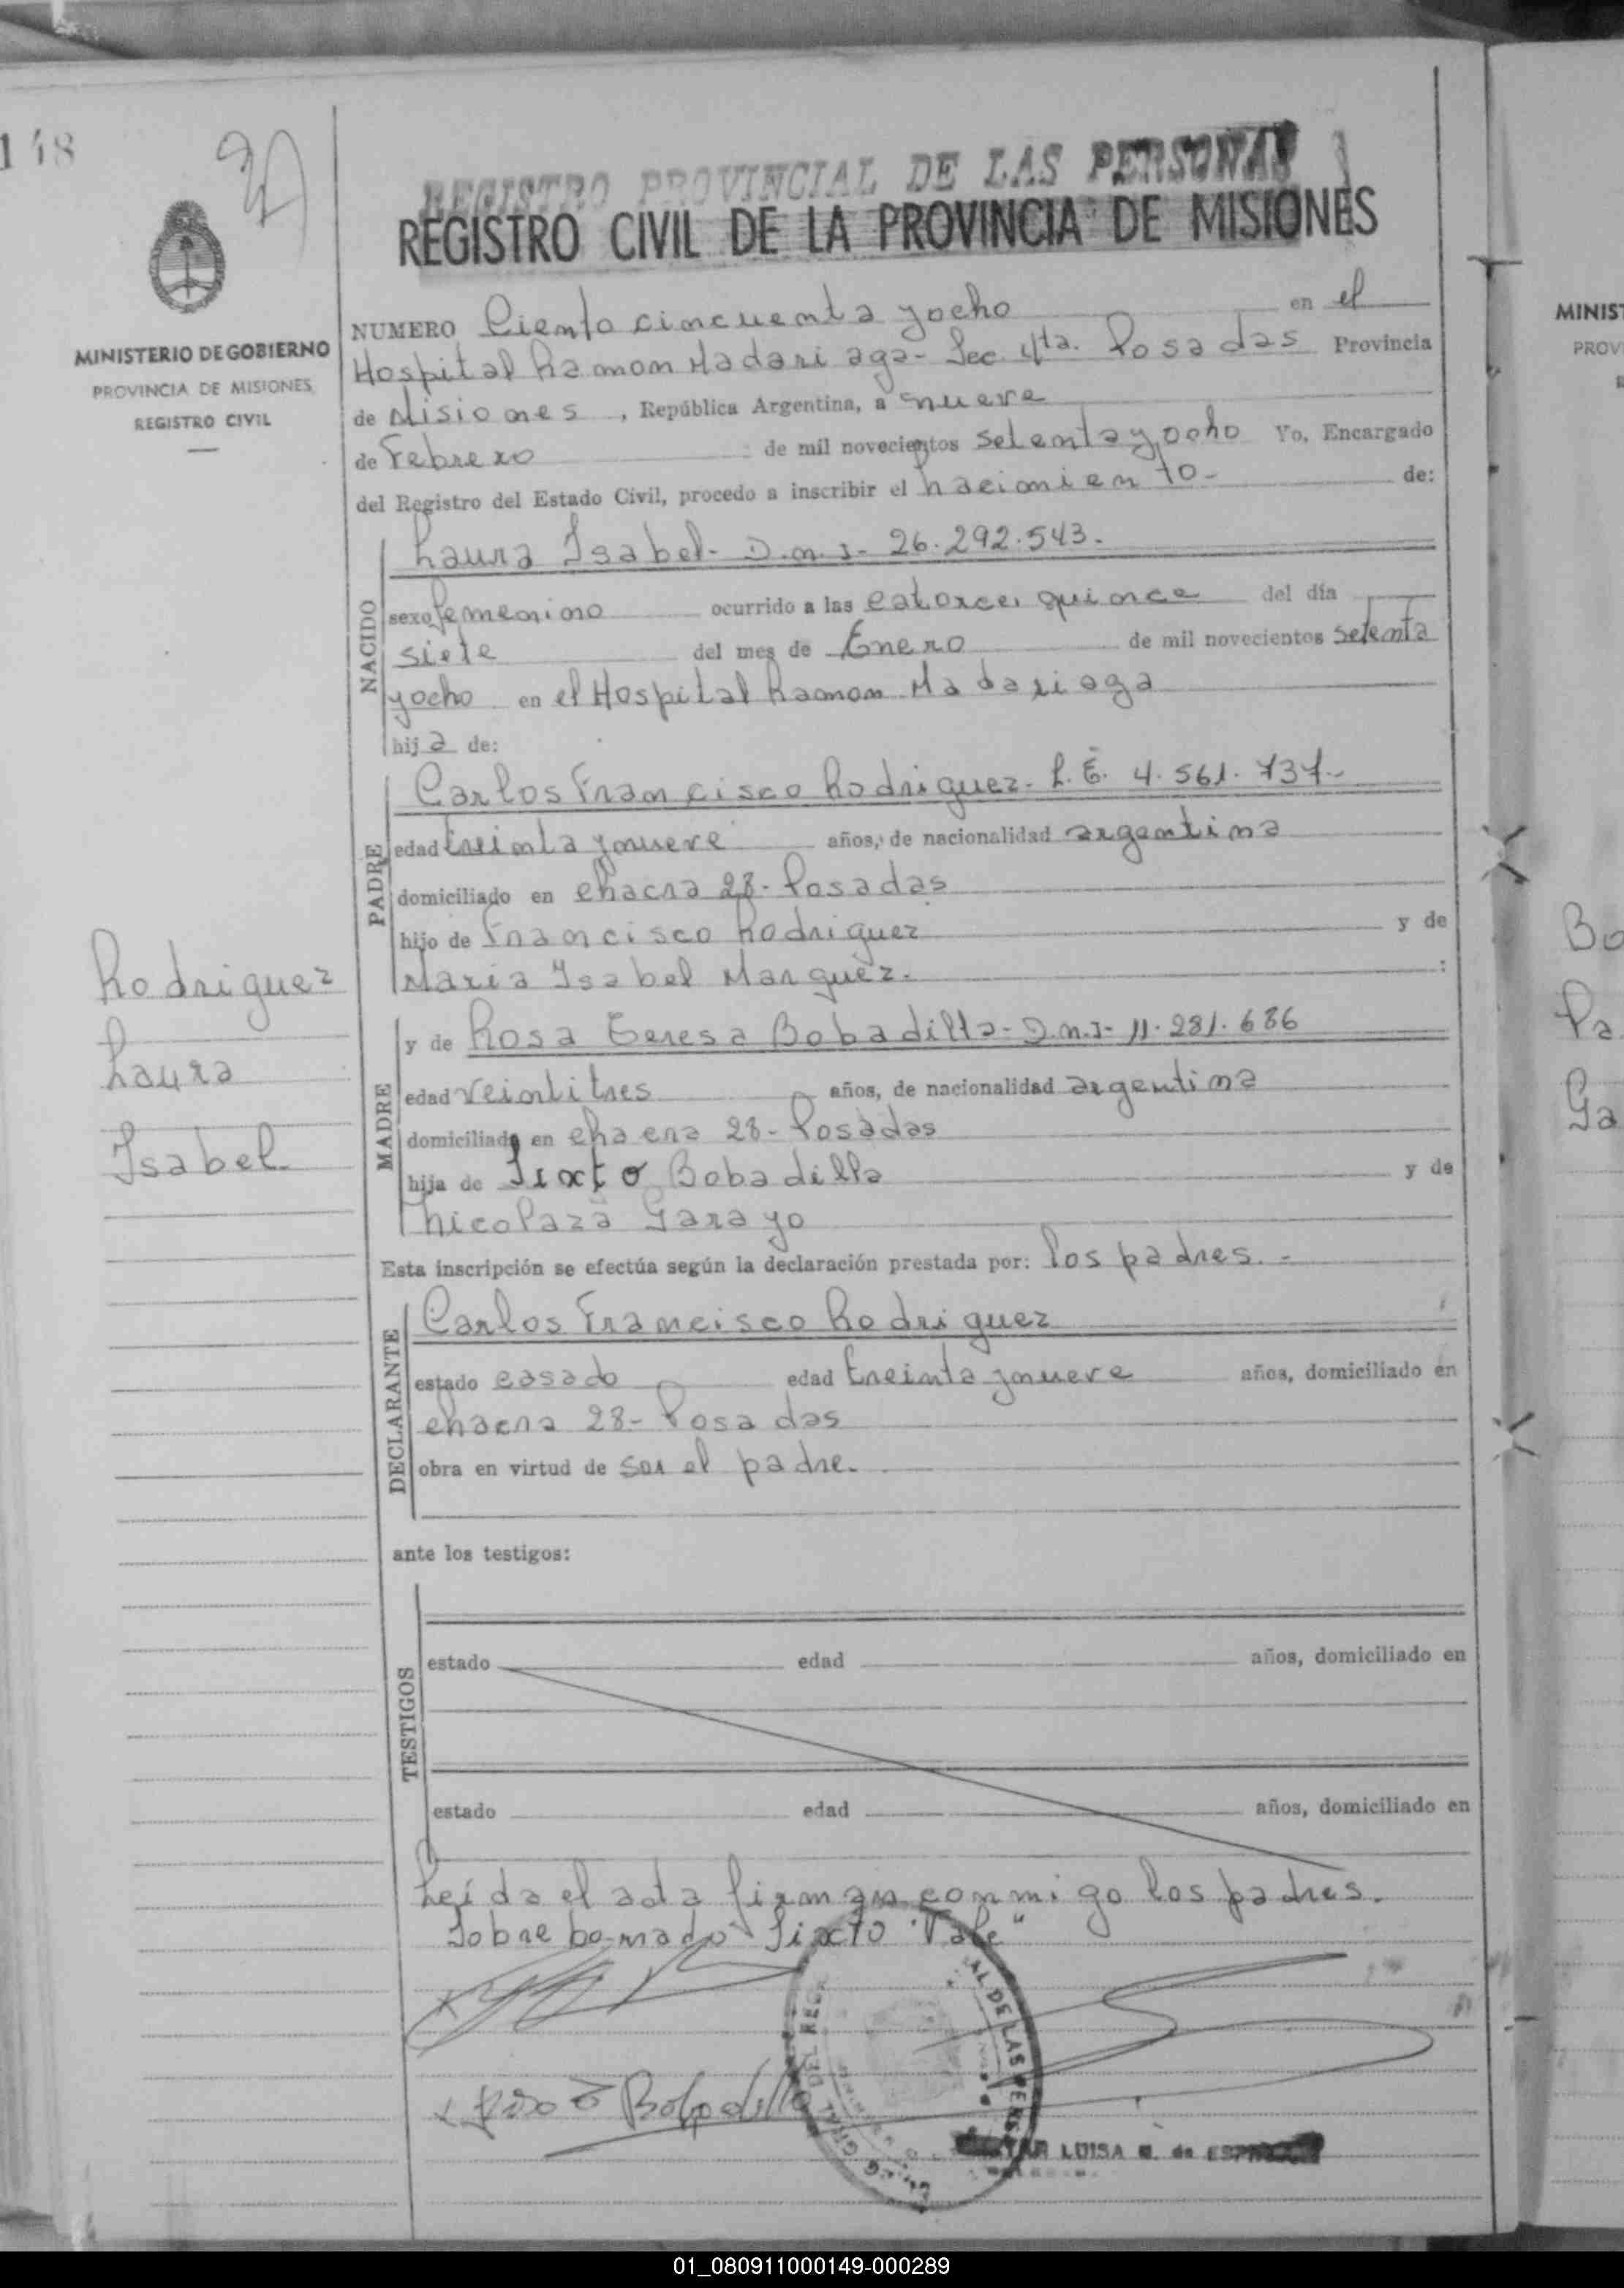 148
REGISTRO PROVINCIAL DE LAS PERSONAS
REGISTRO CIVIL DE LA PROVINCIA DE MISIONES
MINISTERIO DE GOBIERNO
PROVINCIA DE MISIONES
REGISTRO CIVIL
NUMERO Ciento cincuenta y ocho en el
Hospital Ramon Madariaga- Sec. 4ta. Posadas Provincia
de Misiones, República Argentina, a nueve
de Febrero de mil novecientos setenta y ocho Yo, Encargado
del Registro del Estado Civil, procedo a inscribir el nacimiento- de:
NACIDO
Laura Isabel- D.n.I- 26.292.543.
sexo femenino ocurrido a las catorce, quince del día
siete del mes de Enero de mil novecientos setenta
y ocho en el Hospital Ramon Madariaga
hija de:
PADRE
Carlos Francisco Rodriguez- L.E. 4.561.737-
edad treinta y nueve años, de nacionalidad argentina
domiciliado en chacra 28- Posadas
hijo de Francisco Rodriguez y de
Maria Isabel Marquez.- :
Rodriguez
Laura
Isabel
MADRE
y de Rosa Teresa Bobadilla- D.n.I- 11.281.686
edad veintitres años, de nacionalidad argentina
domiciliada en chacra 28- Posadas
hija de Sixto Bobadilla y de
Nicolaza Garayo
Esta inscripción se efectúa según la declaración prestada por: los padres.-
DECLARANTE
Carlos Francisco Rodriguez
estado casado edad treinta y nueve años, domiciliado en
chacra 28- Posadas
obra en virtud de ser el padre.
ante los testigos:
TESTIGOS
estado edad años, domiciliado en
estado edad años, domiciliado en
Leída el acta firman conmigo los padres.
Sobre borrado "Sixto "Vale"
Bobadilla
LUISA
MINIST
PROV
Bo
Pa
Ga
01_080911000149-000289